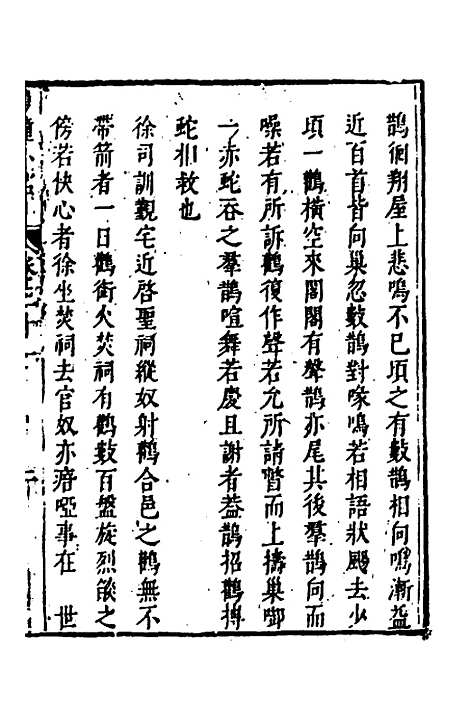 鵲徊翔屋上悲鳴不已頃之有數鵲相向鳴漸益
近百首皆向巢忽數鵲對喙鳴若相語狀颺去少
頃一鸛橫空來閣閣有聲鵲亦尾其後羣鵲向而
噪若有所訴鸛復作聲若允所請瞥而上擣巢啣
一赤蛇吞之羣鵲喧舞若慶且謝者葢鵲招鸛搏
蛇相救也
徐司訓觀宅近啓聖祠縱奴射鸛合邑之鸛無不
帶箭者一日鸛銜火焚祠有鸛數百盤旋烈燄之
傍若快心者徐坐焚祠去官奴亦瘖啞事在 世